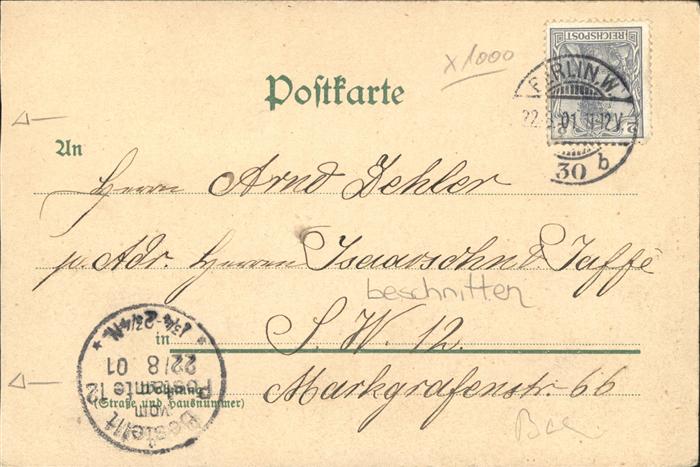 x 1000
REICHSPOST
Postkarte
BERLIN. W.
22.8.01 11-12V
30 b
An
Herrn Arnd Dehler
p. Adr. Herren Isaacsohn & Jaffé
beschnitten
in S. W. 12.
Wohnung
(Straße und Hausnummer)
Markgrafenstr. 66
Bestellt
vom
Postamte 12
22/8 01
1¾-2½N.